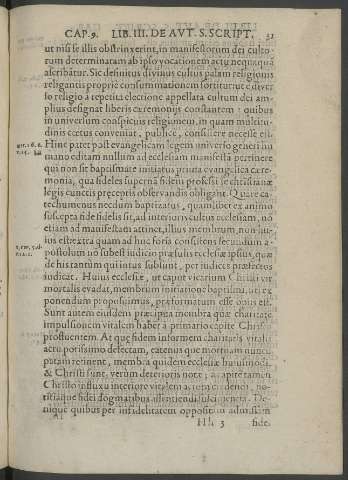 CAP. 9. LIB. III. DE AVT. S. SCRIPT. 31
ut nisi se illis obstrinxerint, in manifestorum dei cultorum
determinatam ab ipso vocationem actu nequaquā
ascribātur. Sic definitus divinus cultus
religantis proprie
so religio à repetita electione appellata cultum dei amplius
designat liberis cæremoniis constantem: quibus
in universum conspicuus religionem, in quam multitudinis
cœtus conveniat, publicè, consistere necesse est.
Hinc patet post evangelicam legem universo generi humano
editam nullum ad ecclesiam manifestā pertinere
qui non sit baptismate initiatus
monia, qua fideles supernā fidem professi se christianæ
legis cunctis præceptis observandis obligant. Quare catechumenus
necdum baptizatus, quamlibet ex animo
suscepta fide fidelis sit, ad interiorē cultus ecclesiam, nō
etiam ad manifestam attinet, illius membrum, non huius
est: extra quam ad huc foris consistens secundum apostolum
nō subest iudicio præsulis ecclesiæ ipsius, quæ
de his tantùm qui intus sublunt, per iudices præfectos
iudicat. Huius ecclesiæ, ut caput vicarium Christi vir
mortalis evadat, membrum initiatione baptismi, uti exponendum
proposuimus, præformatum esse opus est.
Sunt autem eiusdem præcipua membra quæ charitate
impulsionem vitalem habet à primario capite Christo
profluentem. At quę fidem informem charitatis vitali
actu potissimo defectam, catenus quę mortuam nuncupatam
retinent, membra quidem ecclesiæ huiusmodi,
& Christi sunt, verùm deterioris notę; à capite tamen
Christo influxu interiore vitalem
titiamque fidei dogmatibus
nique quibus per infidelitatem oppositam admissam
Hh 3 fide,